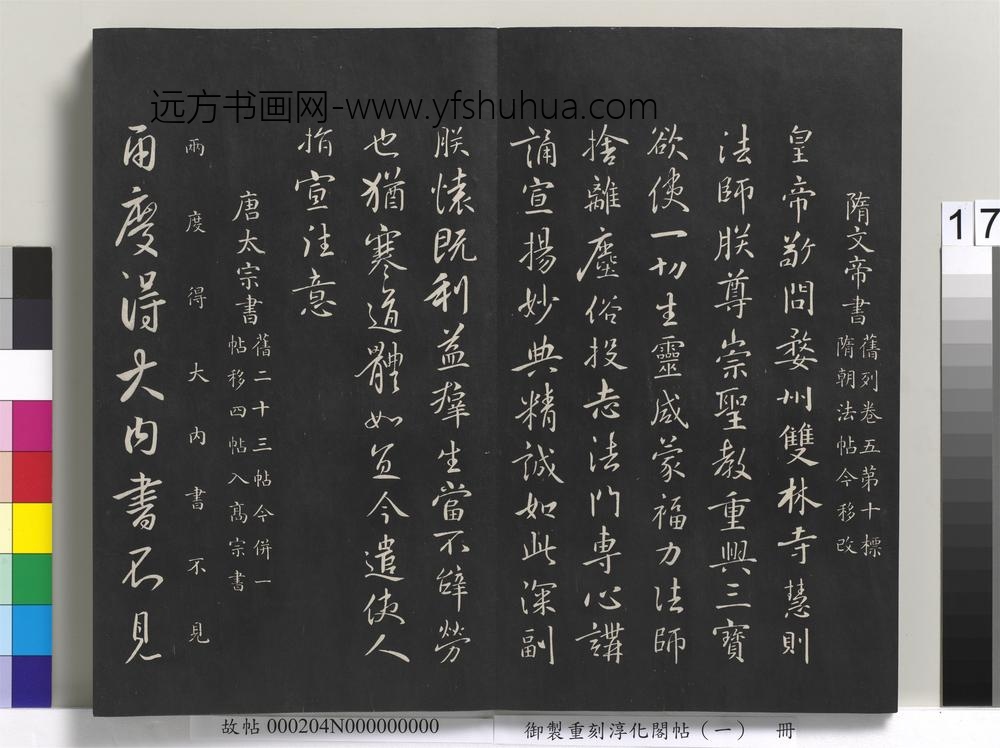 远方书画网-www.yfshuhua.com
隋文帝書
舊列卷五第十標
隋朝法帖今移改
皇帝敬問婺州雙林寺慧則
法師朕尊崇聖教重興三寶
欲使一切生靈咸蒙福力法師
捨離塵俗投志法門專心講
誦宣揚妙典精誠如此深副
朕懷既利益羣生當不辭勞
也猶寒道體如宜今遣使人
指宣往意
唐太宗書
舊二十三帖今併一
帖移四帖入高宗書
兩度得大內書不見
兩度得大內書不見
17
故帖 000204N000000000
御製重刻淳化閣帖(一) 冊